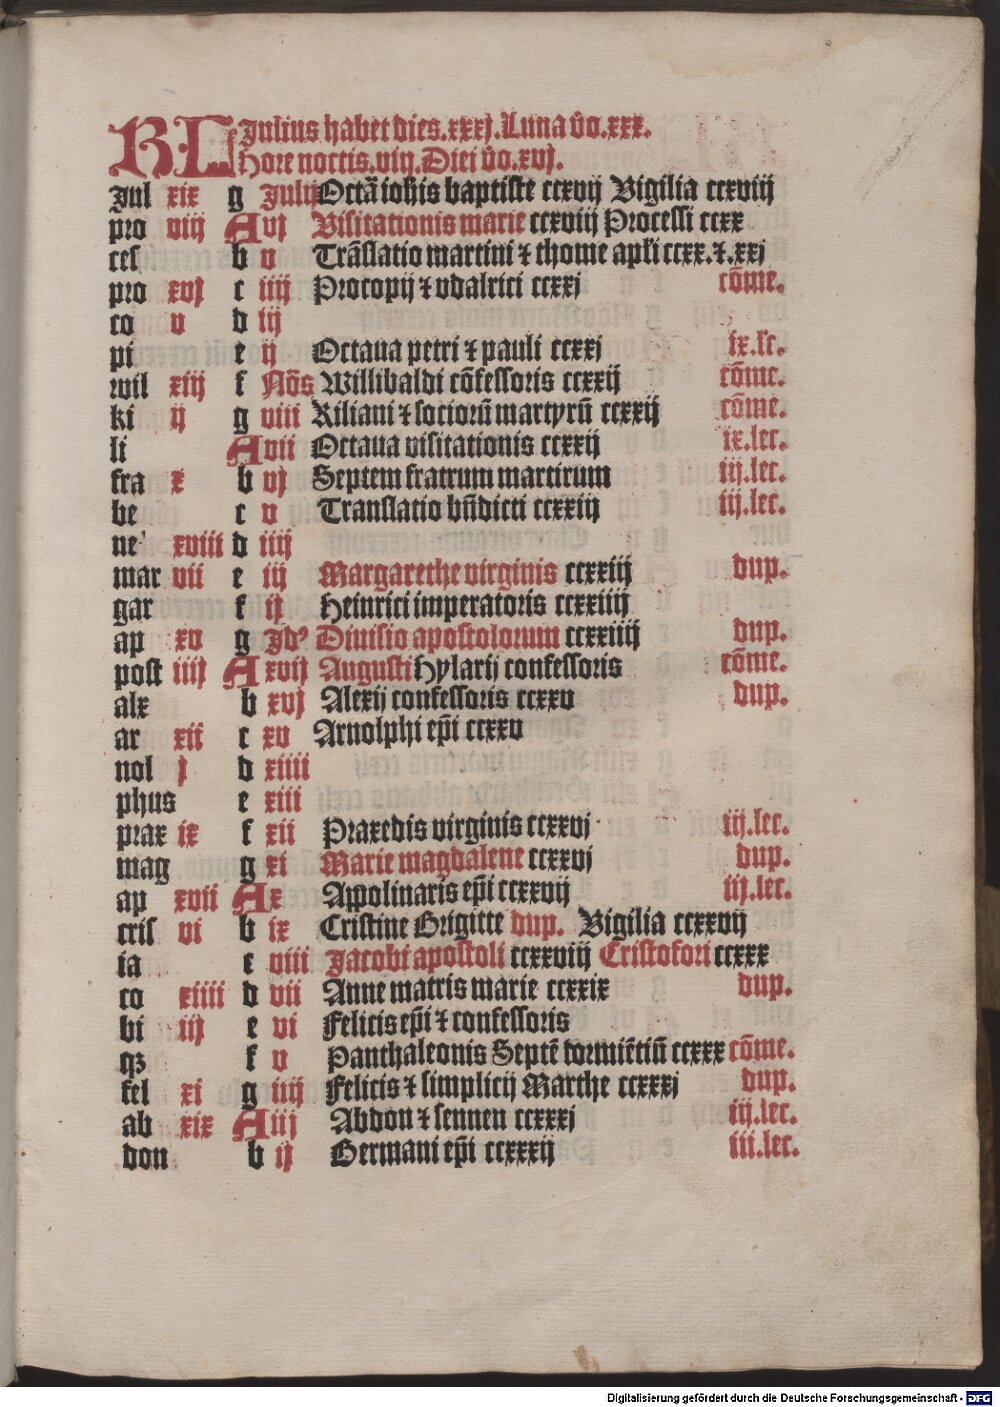 KL Julius habet dies.xxxj.Luna v̄o.xxx.
Hore noctis.viij.Diei v̄o.xvj.
Jul xix g Julij Octā iohīs baptiste ccxvij Vigilia ccxviij
pro viij A vj Visitationis marie ccxviij Processi ccxx
ces b v Trāslatio martini ⁊ thome apli ccxx.⁊.xxj
pro xvj c iiij Procopij ⁊ vdalrici ccxxj cōme.
co v d iij
pi e ij Octaua petri ⁊ pauli ccxxj ix.lc.
wil xiij f Nōs Willibaldi cōfessoris ccxxij cōme.
ki ij g viii Kiliani ⁊ sociorū martyrū ccxxij cōme.
li A vii Octaua visitationis ccxxij ix.lec.
fra x b vj Septem fratrum martirum iij.lec.
be c v Translatio bn̄dicti ccxxiij iij.lec.
ne xviii d iiij
mar vii e iij Margarethe virginis ccxxiij dup.
gar f ij Heinrici imperatoris ccxxiiij
ap xv g Jdꝰ Diuisio apostolorum ccxxiiij dup.
post iiij A xvij Augusti Hylarij confessoris cōme.
alx b xvj Alexij confessoris ccxxv dup.
ar xii c xv Arnolphi ep̄i ccxxv
nol j d xiiii
phus e xiii
prax ix f xii Praxedis virginis ccxxvj iij.lec.
mag g xi Marie magdalene ccxxvj dup.
ap xvii A x Appolinaris ep̄i ccxxvij iij.lec.
cris vi b ix Cristine Brigitte dup. Vigilia ccxxvij
ia c viii Jacobi apostoli ccxxviij Cristofori ccxxx
co xiiii d vii Anne matris marie ccxxix dup.
bi iij e vi Felicis ep̄i ⁊ confessoris
qꝫ f v Panthaleonis Septē dormiētiū ccxxx cōme.
fel xi g iiij Felicis ⁊ simplicij Marthe ccxxxj dup.
ab xix A iij Abdon ⁊ sennen ccxxxj iij.lec.
don b ij Germani ep̄i ccxxxij iii.lec.
Digitalisierung gefördert durch die Deutsche Forschungsgemeinschaft - DFG